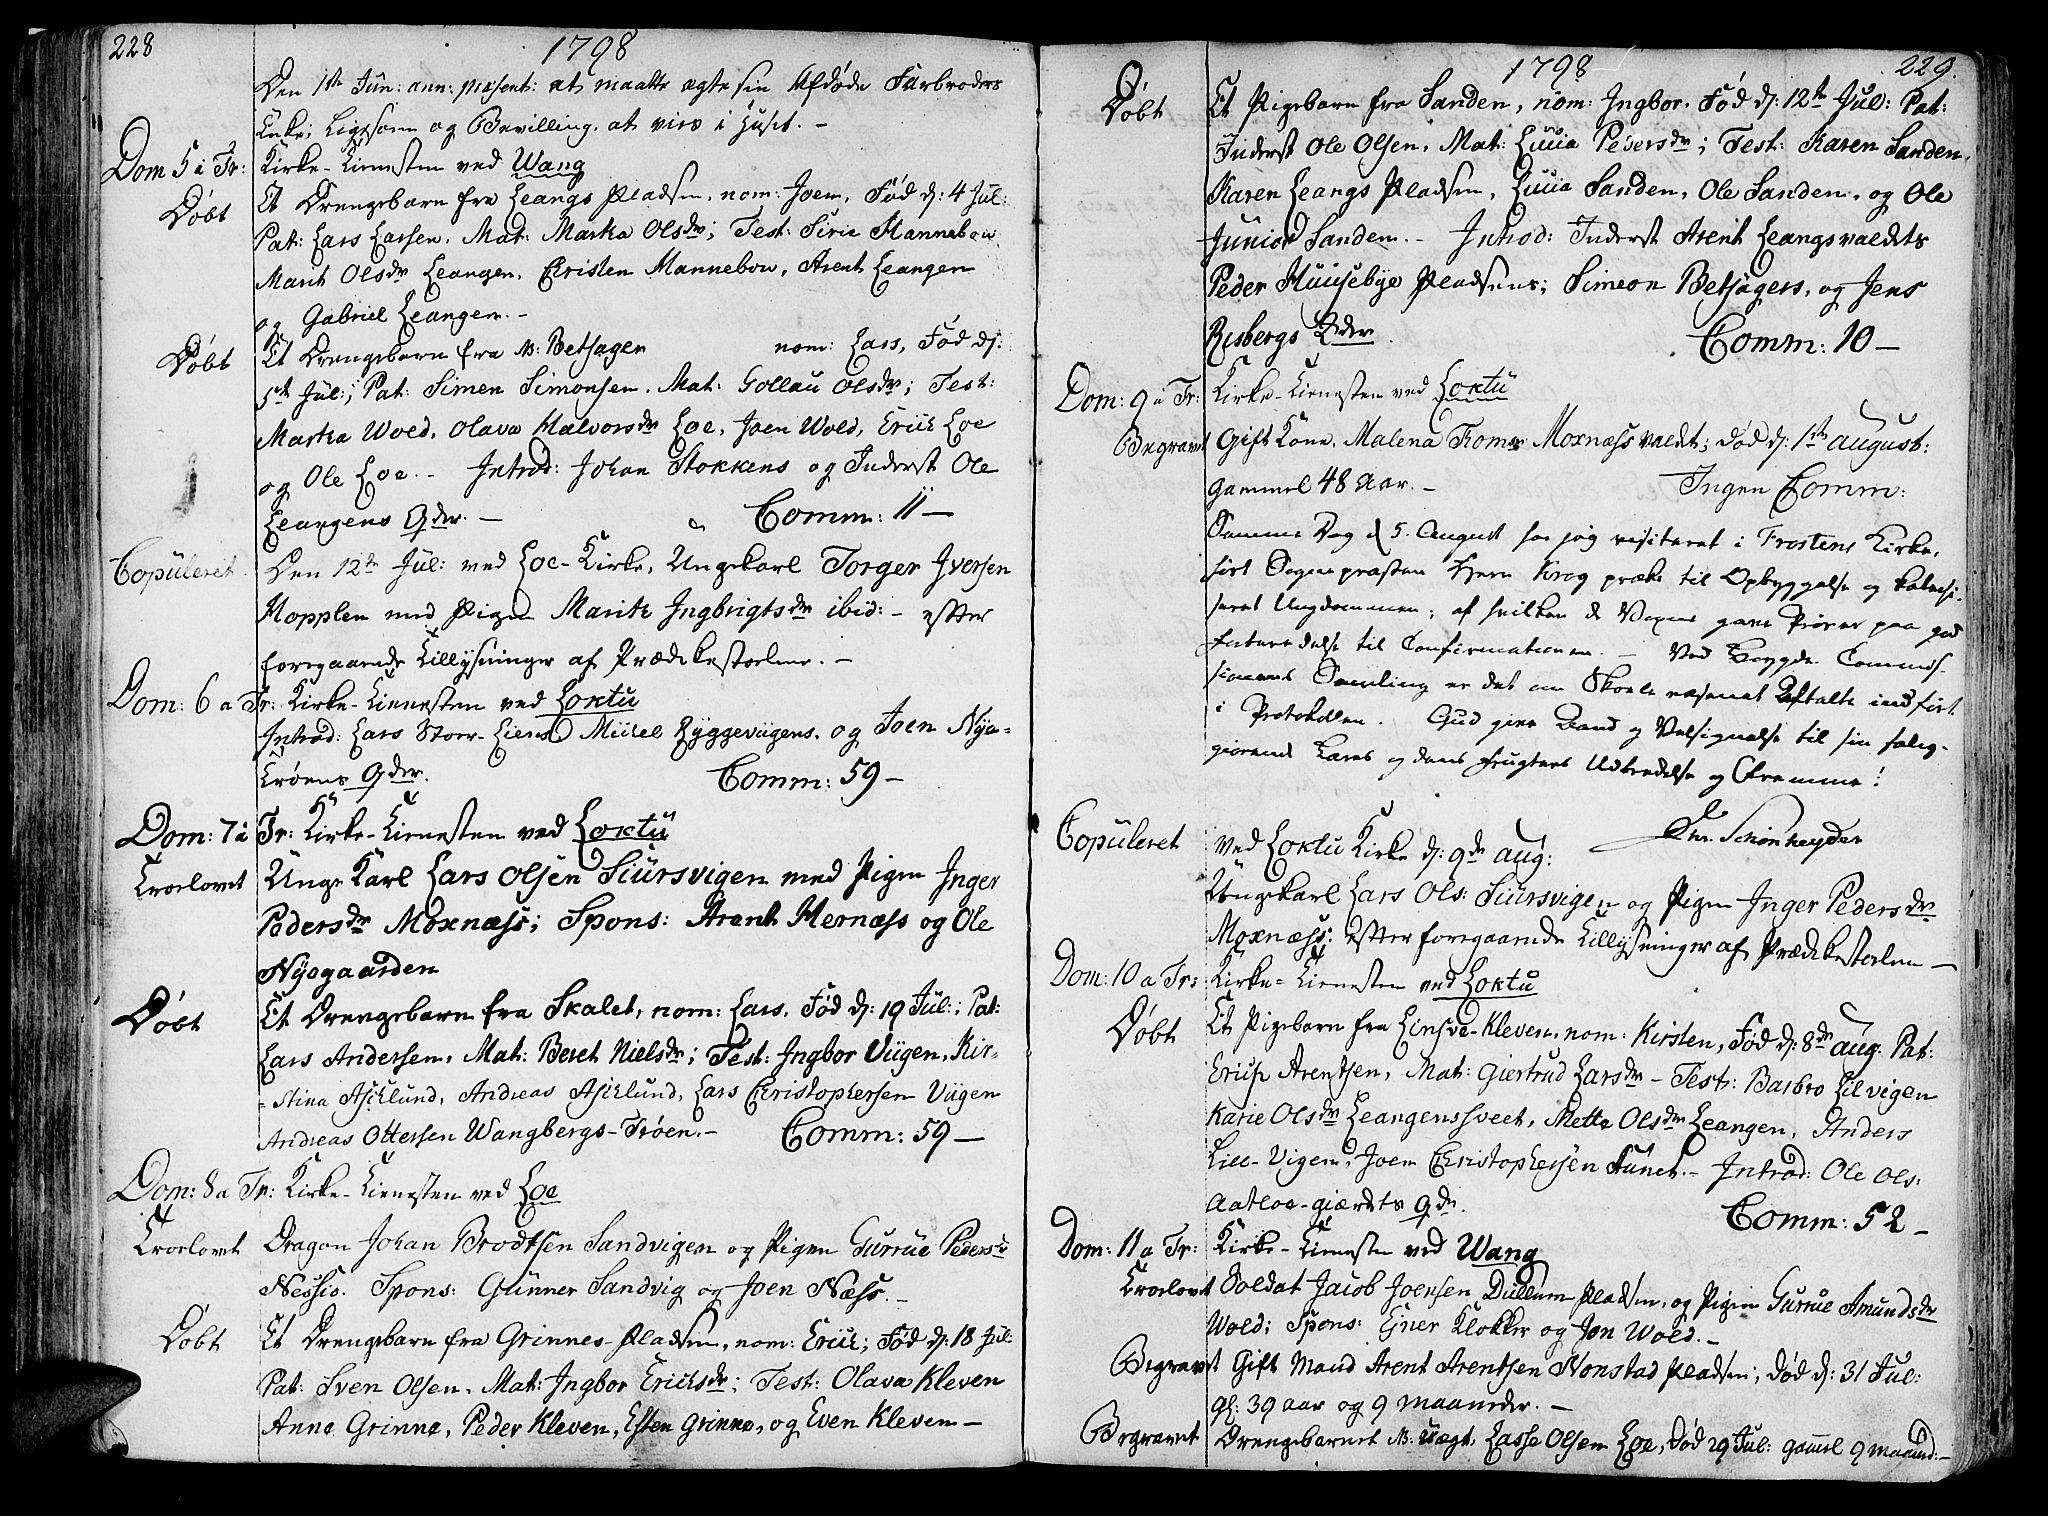 228
1798
Den 1ste Jun: ann: præsent: at maatte ægte sin Afdøde Farbroders
Enke; Ligesom og Bevilling, at vies i Huset. -
Dom 5 a Tr: Kirke-Tienesten ved Wang
Døbt Et Drengebarn fra Leangs Pladsen, nom: Joen, Fød d: 4 Jul:
Pat: Lars Larsen, Mat: Marta Olsdr; Test: Sirie Mannebou
Marit Olsdr Leangen, Christen Mannebow, Arent Leangen
og Gabriel Leangen. -
Døbt Et Drengebarn fra Betsager nom: Lars, Fød d:
5te Jul:, Pat: Simen Simonsen, Mat: Gollau Olsdr; Test:
Marta Wold, Olava Halvorsdr Loe, Joen Wold, Erich Loe
og Ole Loe. - Introd: Johan Stokkens og Inderst Ole
Leangens Qder. - Comm: 11 -
Copuleret Den 12te Jul: ved Loe-Kirke, Ungekarl Torger Iversen
Hopplen med Pigen Marith Ingbrigtsdr ibid: - efter
foregaaende Tillysninger af Prædikestoelene. -
Dom: 6 a Tr: Kirke-Tienesten ved Loktu
Introd: Lars Storr-Liens, Michel Ryggeviigens, og Joen Nya-
Trøens Qder. Comm: 59 -
Dom: 7 a Tr: Kirke-Tienesten ved Loktu
Troelovet Unge Karl Lars Olsen Siursvigen med Pigen Inger
Pedersdr Moxnæss; Spons: Arent Hernæss og Ole
Nysgaarden
Døbt Et Drengebarn fra Skalet, nom: Lars, Fød d: 19 Jul:; Pat:
Lars Andersen, Mat: Beret Nielsdr; Test: Ingbor Viigen, Kir-
-stina Asklund, Andreas Asklund, Lars Christophersen Viigen
Andreas Ottersen Wangbergs-Trøen. - Comm: 59 -
Dom: 8 a Tr: Kirke-Tienesten ved Loe
Troelovet Dragon Johan Brodtsen Sandvigen og Pigen Gurrue Pedersdr
Nessio. Spons: Gunner Sandvig og Joen Næss. -
Døbt Et Drengebarn fra Grinnes-Pladsen, nom: Erich; Fød d: 18 Jul:
Pat: Sven Olsen, Mat: Ingbor Ericksdr; Test: Olava Kleven
Anne Grinne, Peder Kleven, Esten Grinne, og Even Kleven -
1798
229.
Døbt Et Pigebarn fra Sanden, nom: Ingbor, Fød d: 12te Jul: Pat:
Inderst Ole Olsen, Mat: Lucia Pedersdr; Test: Karen Sanden,
Karen Leangs Pladsen, Lucia Sanden, Ole Sanden, og Ole
Junior Sanden. - Introd: Inderst Arent Leangsvaldets
Peder Huusebye Pladsens; Simeon Betsagers, og Jens
Risbergs Qder. Comm: 10 -
Dom: 9 a Tr: Kirke-Tienesten ved Loktu
Begravet Gift Kone, Malena Moxnæss valdt; død d: 1ste August:
gammel 48 Aar. - Ingen Comm:
Samme Dag d 5. August har jeg visiteret i Frostens Kirke,
hørt Sognepræsten Herr Krog præke til Opbyggelse og katechi-
seret Ungdommen; af hvilken de Voxne gave Prøver paa god
forberedelse til Confirmationen. - Ved Bøygde Commis-
sionens Samling er det om Skole væsenet Aftalte indført
i Protokollen. Gud give Aand og Velsignelse til sin salig-
giørende Læres og dens frugters Udbredelse og Fremme!
Chr. Schønheyder
Copuleret Ved Loktu Kirke d: 9de Aug:
Ungekarl Lars Ols: Siursvigen og Pigen Inger Pedersdr
Moxnæss: efter foregaaende Tillysninger af Prædikestoelen -
Dom: 10 a Tr: Kirke-Tienesten ved Loktu
Døbt Et Pigebarn fra Einsve-Kleven, nom: Kirsten, Fød d: 8de Aug: Pat:
Erich Arentsen, Mat: Giertrud Larsdr - Test: Barbro Lilvigen
Karie Olsdr Leangenssveet, Mette Olsdr Leangen, Anders
Lill-Vigen, Joen Christophersen Tunet. - Introd: Ole Ols:
Aatloe-giærdets Qdr. Comm: 52 -
Dom: 11 a Tr: Kirke-Tienesten ved Wang
Troelovet Soldat Jacob Joensen Dullum Pladsen, og Pigen Gurrue Amundsdr
Wold; Spons: Ejner Klokker og Jon Wold. -
Begravet Gift Mand Arent Arentsen Nonstad Pladsen; død d: 31 Jul:
gl: 39 aar og 9 maaneder. -
Begravet Drengebarnet Lasse Olsen Loe, død 29 Jul: gamel 9 maaned: -